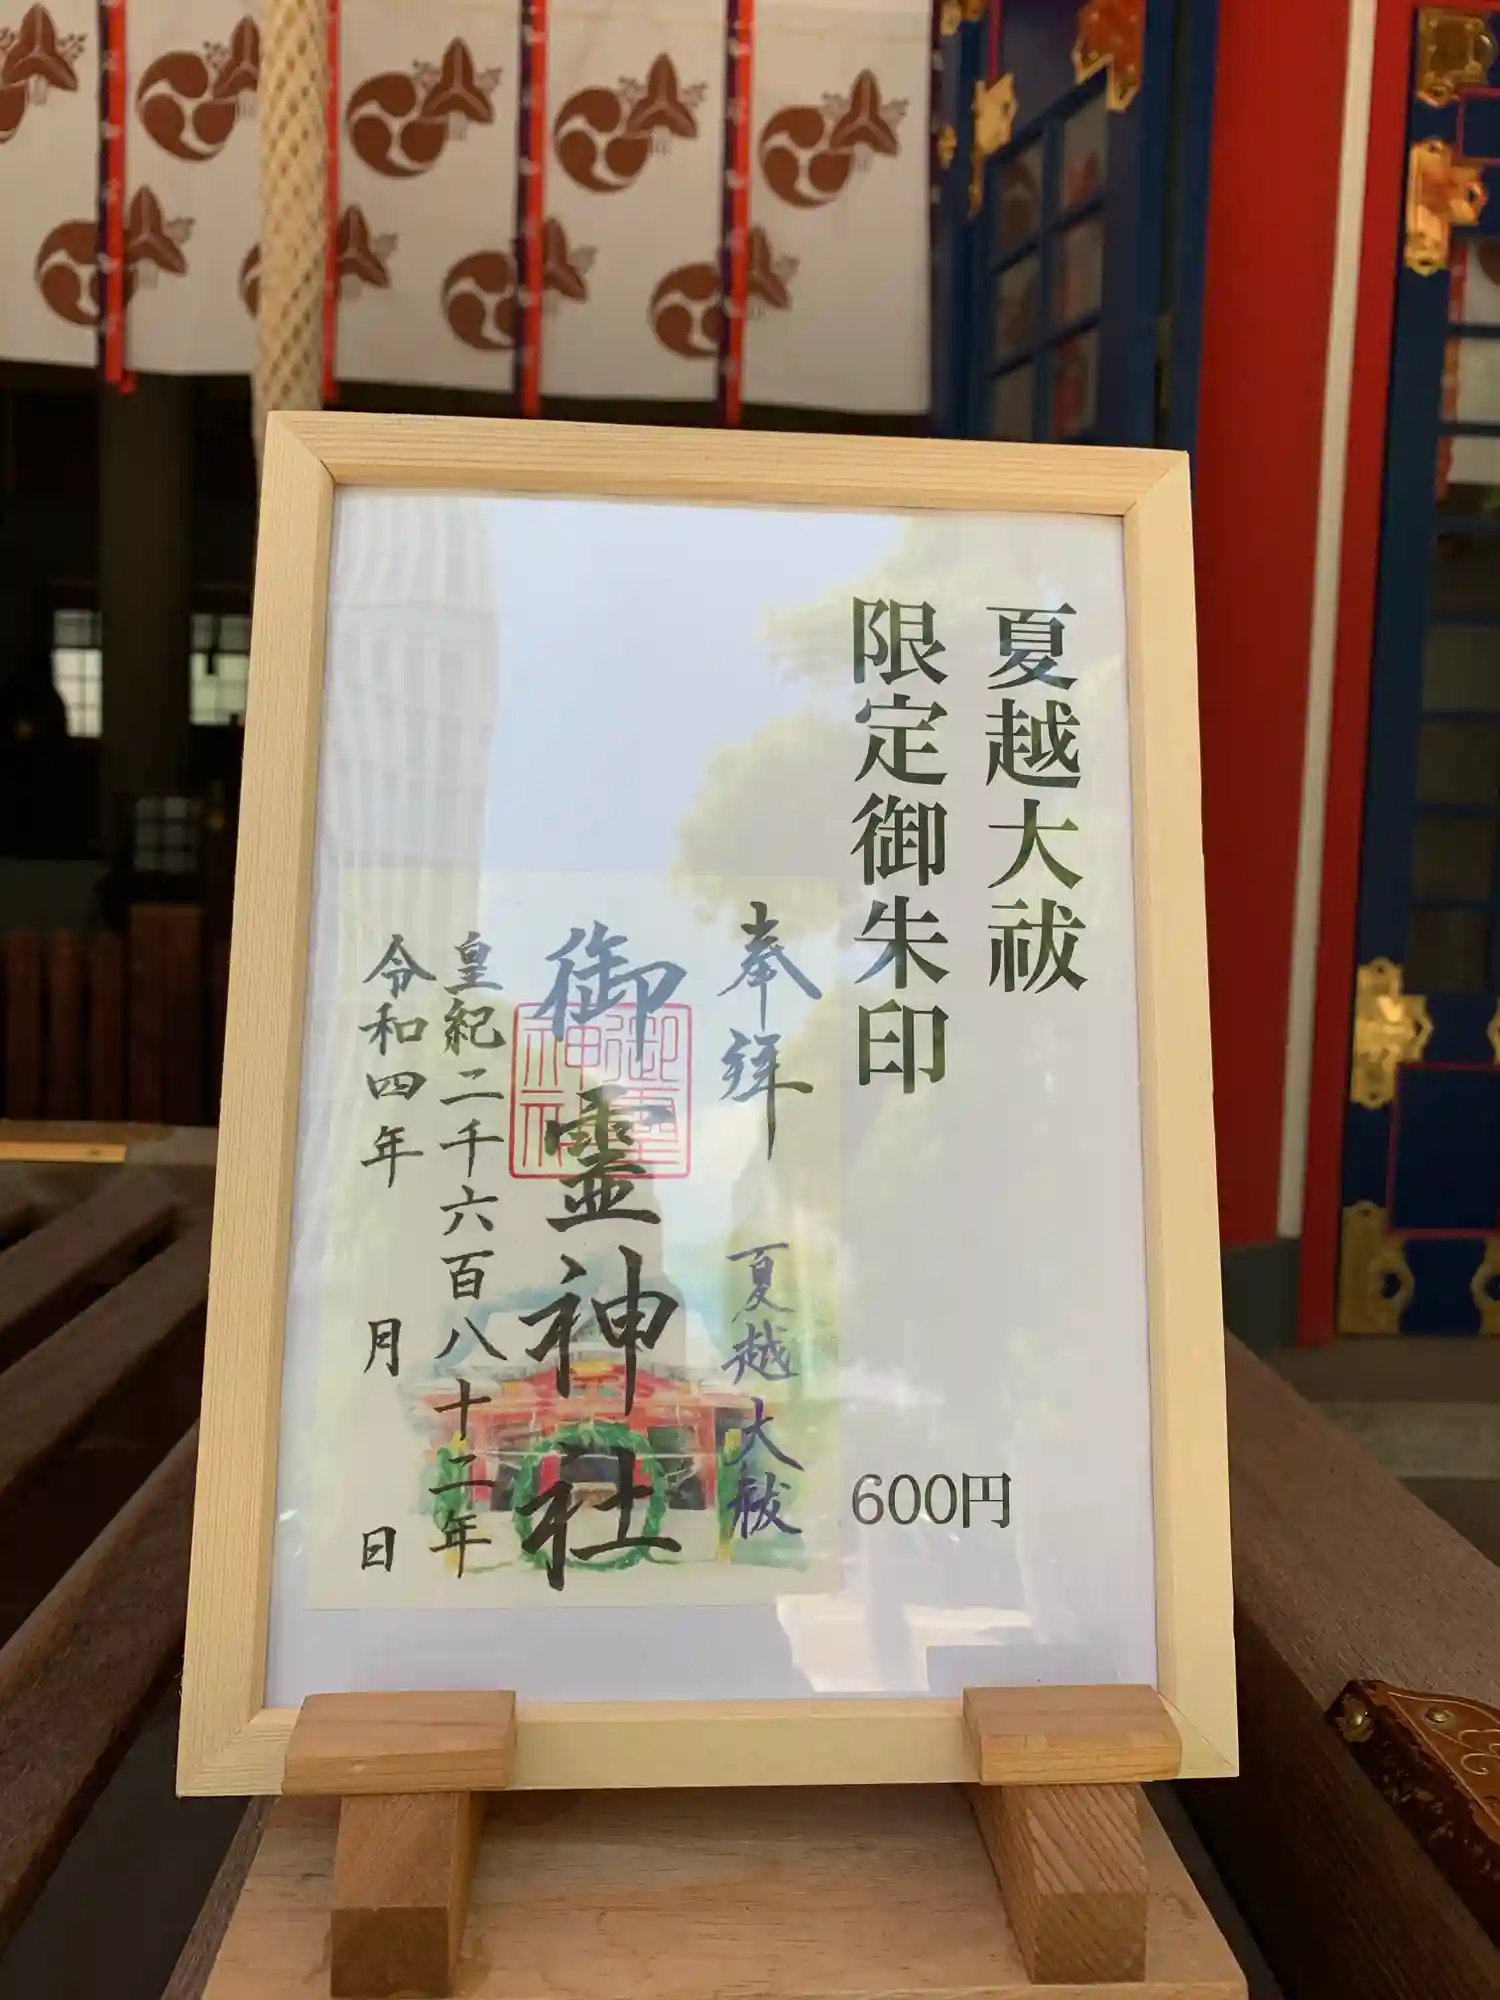 夏越大祓
限定御朱印
600円
奉拝
夏越大祓
御霊神社
御霊
神社
皇紀二千六百八十二年
令和四年 月 日